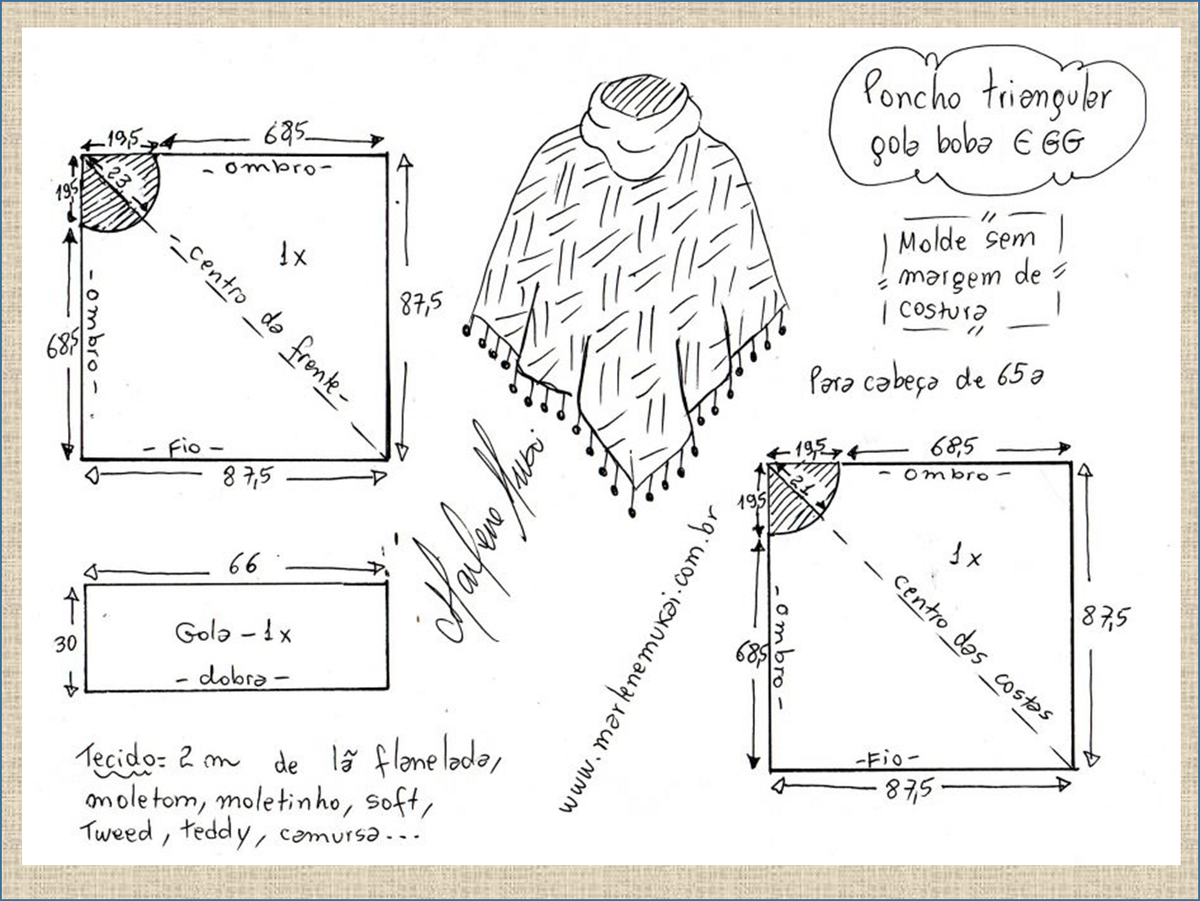 Poncho triangular
gola boba EGG
Molde sem
margem de
costura
Para cabeça de 65a
19,5
68,5
19,5
23
- ombro -
1x
- centro da frente -
- ombro -
68,5
87,5
- Fio -
87,5
66
30
Gola - 1x
- dobra -
Tecido = 2 m de lã flanelada,
moletom, moletinho, soft,
Tweed, teddy, camursa...
Marlene Mukai
www.marlenemukai.com.br
19,5
68,5
19,5
21
- ombro -
1x
centro das costas
- ombro -
68,5
87,5
- Fio -
87,5